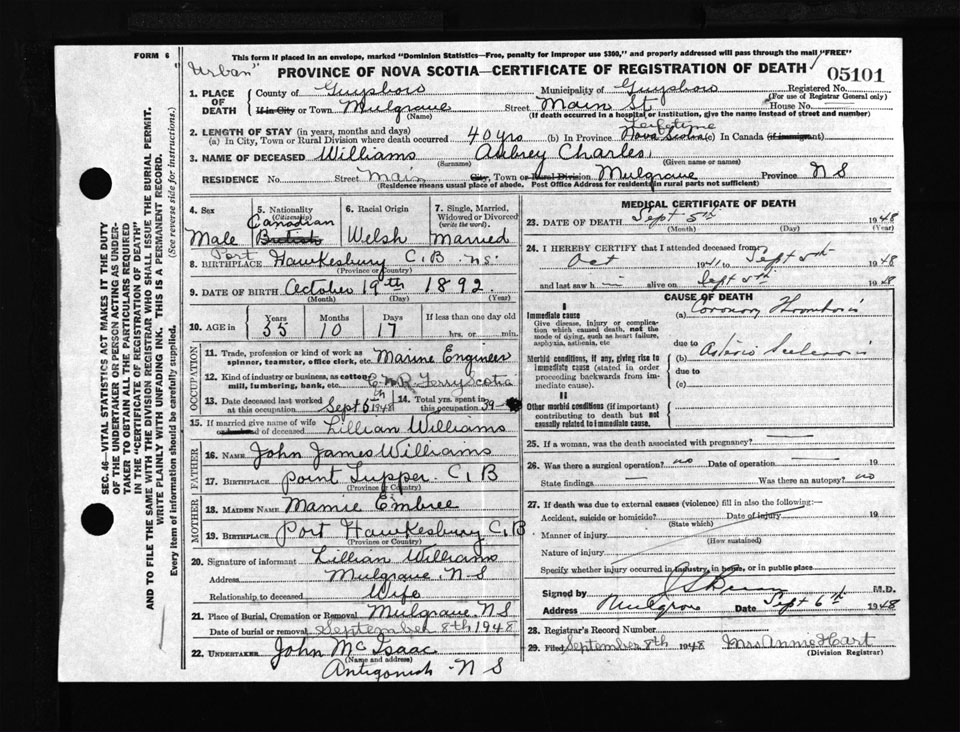 FORM 6
This form if placed in an envelope, marked "Dominion Statistics—Free, penalty for improper use $300," and properly addressed will pass through the mail "FREE"
"Urban"
PROVINCE OF NOVA SCOTIA—CERTIFICATE OF REGISTRATION OF DEATH
05101
1. PLACE OF DEATH
County of Guysboro Municipality of Guysboro Registered No.
(For use of Registrar General only)
If in City or Town Mulgrave Street Main St House No.
(Name) (If death occurred in a hospital or institution, give the name instead of street and number)
2. LENGTH OF STAY (in years, months and days)
(a) In City, Town or Rural Division where death occurred 40 yrs (b) In Province Lifetime Nova Scotia (c) In Canada (if immigrant)
3. NAME OF DECEASED Williams Aubrey Charles
(Surname) (Given name or names)
RESIDENCE No. Street Main City, Town or Rural Division Mulgrave Province N S
(Residence means usual place of abode. Post Office Address for residents in rural parts not sufficient)
4. Sex Male
5. Nationality (Citizenship) Canadian British
6. Racial Origin Welsh
7. Single, Married, Widowed or Divorced (write the word). Married
8. BIRTHPLACE Port Hawkesbury C.B. N.S.
(Province or Country)
9. DATE OF BIRTH October 19th 1892
(Month) (Day) (Year)
10. AGE in Years 55 Months 10 Days 17 If less than one day old hrs. or min.
OCCUPATION
11. Trade, profession or kind of work as spinner, teamster, office clerk, etc. Marine Engineer
12. Kind of industry or business, as cotton mill, lumbering, bank, etc. C.N.R. Ferry Scotia
13. Date deceased last worked at this occupation Sept 5th 1948
14. Total yrs. spent in this occupation 39
15. If married give name of wife or husband of deceased Lillian Williams
FATHER
16. NAME John James Williams
17. BIRTHPLACE Point Tupper C.B
(Province or Country)
MOTHER
18. MAIDEN NAME Mamie Embree
19. BIRTHPLACE Port Hawkesbury C.B
(Province or Country)
20. Signature of informant Lillian Williams
Address Mulgrave, N S
Relationship to deceased Wife
21. Place of Burial, Cremation or Removal Mulgrave, NS
Date of burial or removal September 8th 1948
22. UNDERTAKER John McIsaac
(Name and address)
Antigonish N S
MEDICAL CERTIFICATE OF DEATH
23. DATE OF DEATH Sept 5th 1948
(Month) (Day) (Year)
24. I HEREBY CERTIFY that I attended deceased from
Oct 1941 to Sept 5th 1948
and last saw h alive on Sept 5th 1948
CAUSE OF DEATH
I
Immediate cause
Give disease, injury or complication which caused death, not the mode of dying, such as heart failure, asphyxia, asthenia, etc
(a) Coronary Thrombosis
due to
Morbid conditions, if any, giving rise to immediate cause (stated in order proceeding backwards from immediate cause).
(b) Arterio Sclerosis
due to
(c)
II
Other morbid conditions (if important) contributing to death but not causally related to immediate cause.
25. If a woman, was the death associated with pregnancy?
26. Was there a surgical operation? no Date of operation 19
State findings Was there an autopsy? no
27. If death was due to external causes (violence) fill in also the following:—
Accident, suicide or homicide? Date of injury 19
(State which)
Manner of injury
(How sustained)
Nature of injury
Specify whether injury occurred in industry, in home, or in public place
Signed by M.D.
Address Mulgrave Date Sept 6th 1948
28. Registrar's Record Number
29. Filed September 8th 1948 Mrs Annie Hart
(Division Registrar)
SEC. 46—VITAL STATISTICS ACT MAKES IT THE DUTY
OF THE UNDERTAKER OR PERSON ACTING AS UNDERTAKER TO OBTAIN ALL THE PARTICULARS REQUIRED
IN THE "CERTIFICATE OF REGISTRATION OF DEATH"
AND TO FILE THE SAME WITH THE DIVISION REGISTRAR WHO SHALL ISSUE THE BURIAL PERMIT.
WRITE PLAINLY WITH UNFADING INK. THIS IS A PERMANENT RECORD.
Every item of information should be carefully supplied.
(See reverse side for instructions.)